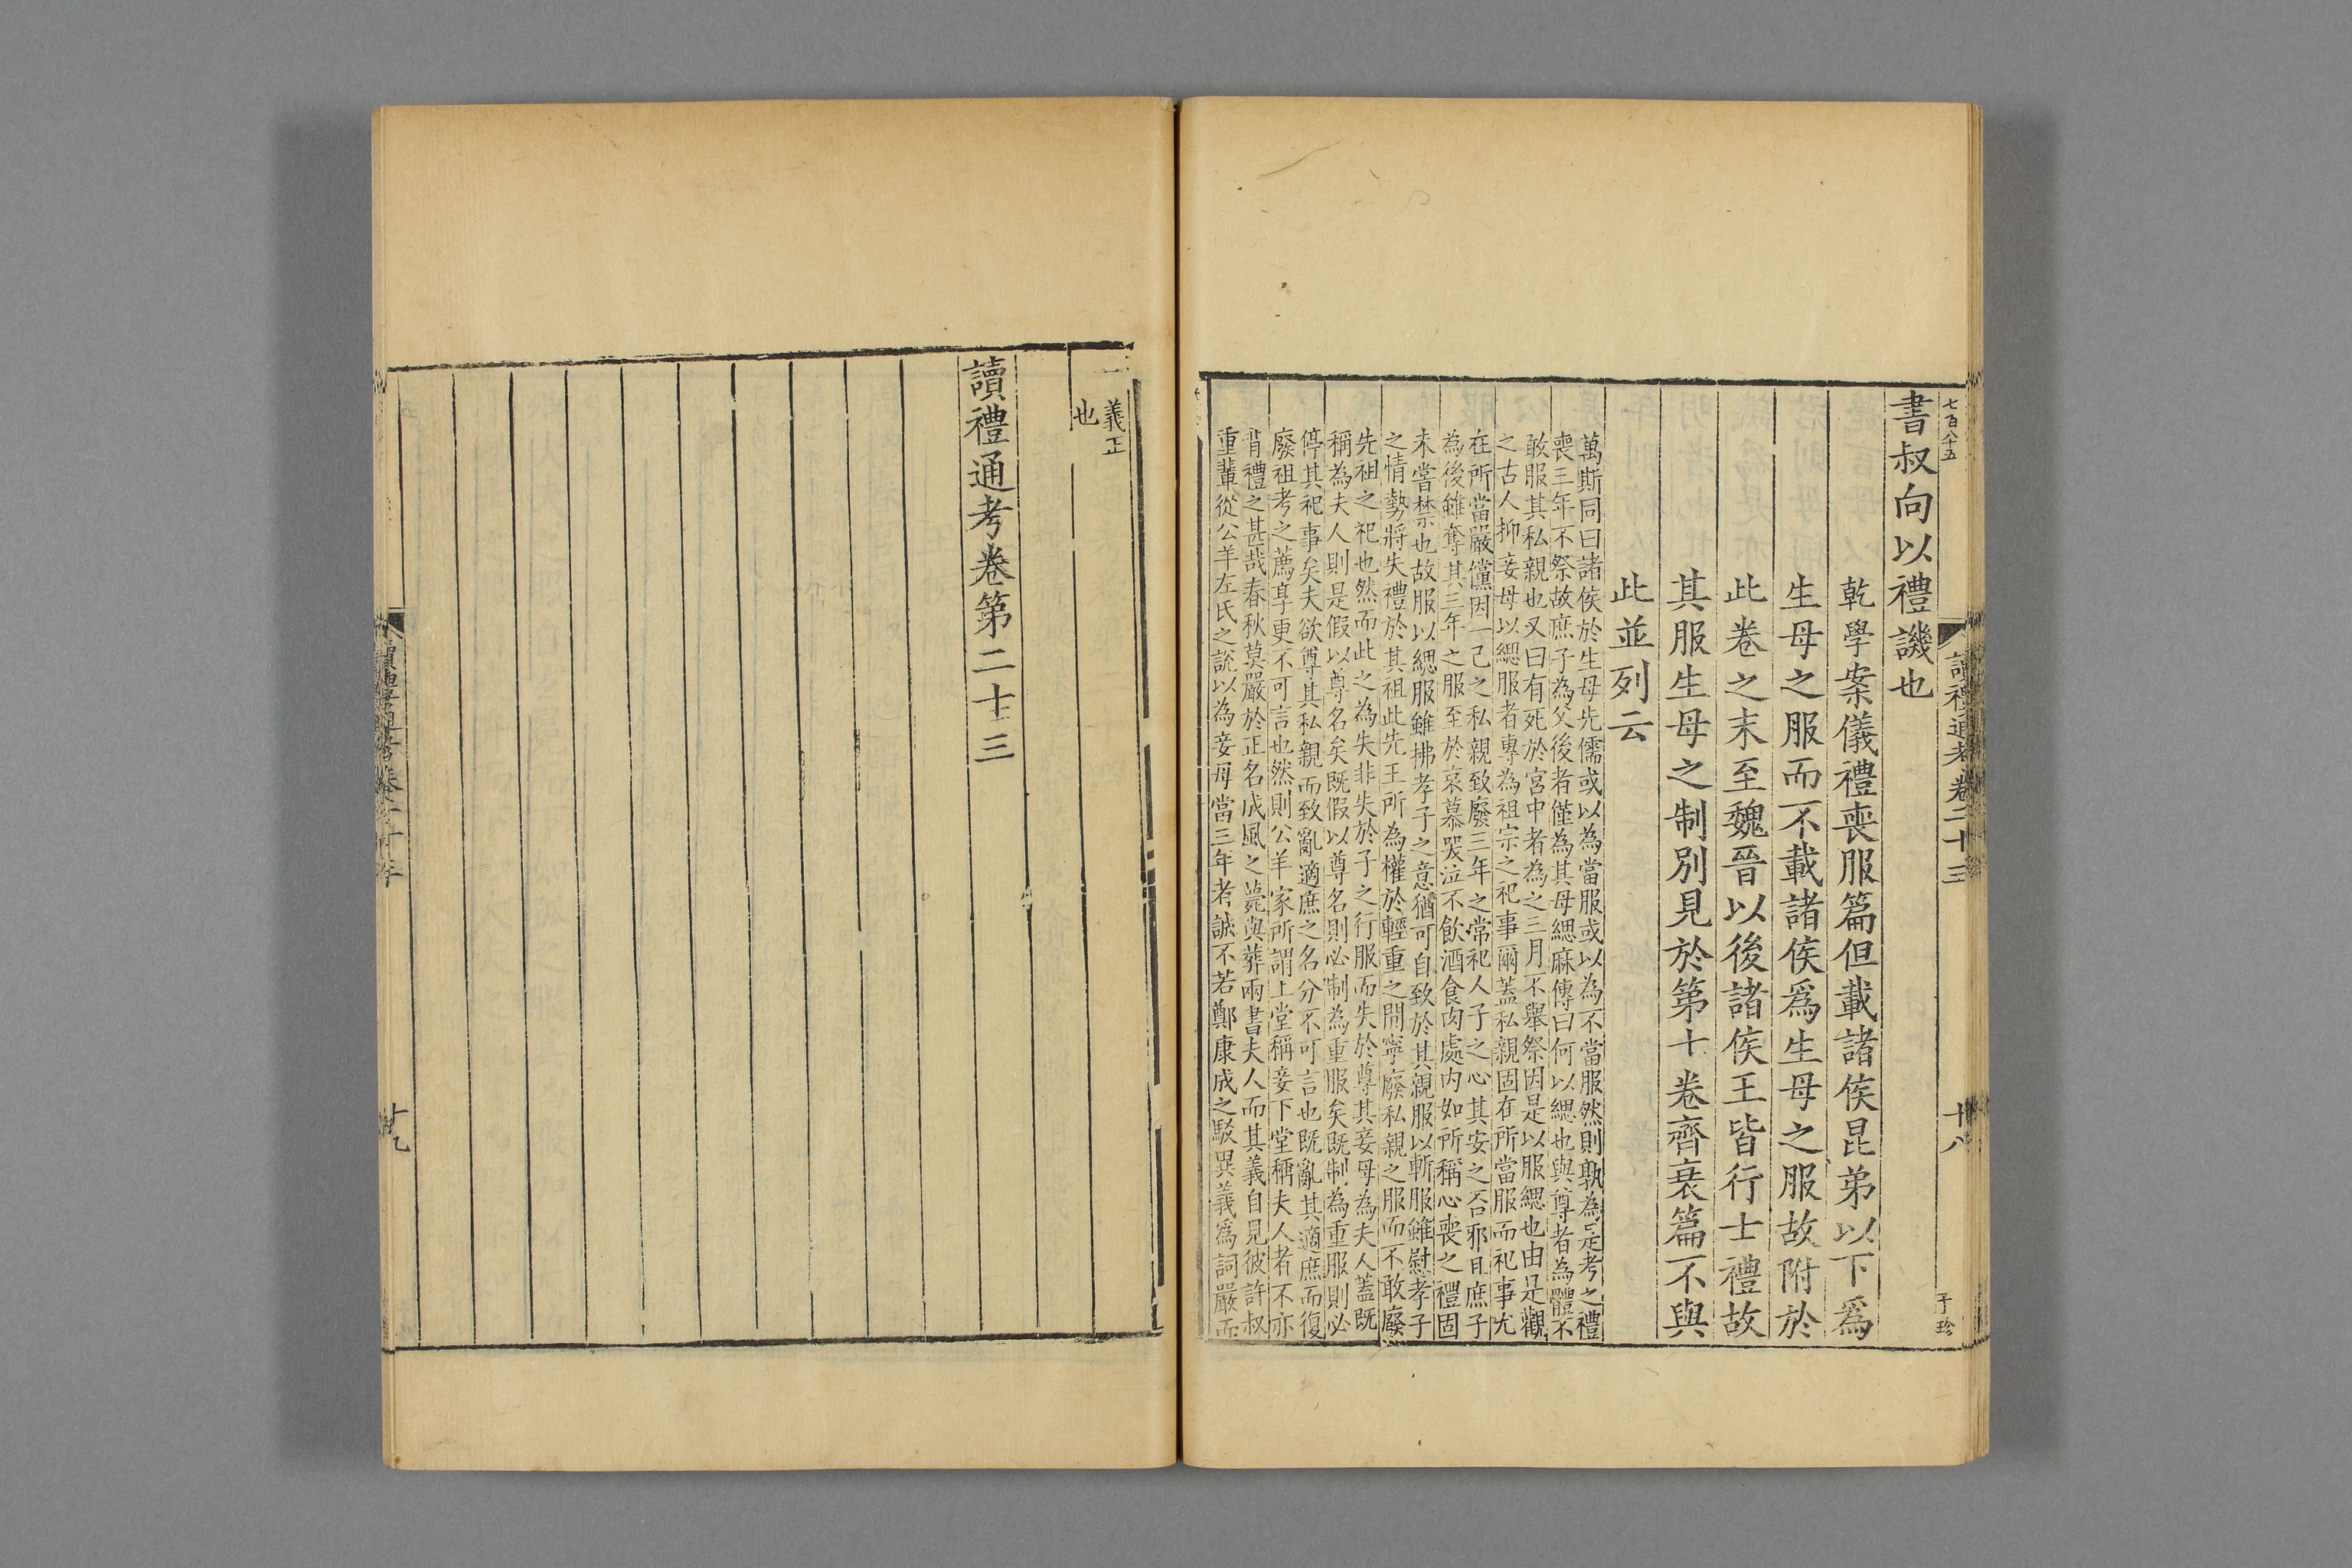 七百八十五
讀禮通考卷二十三
十八
子珍
書叔向以禮譏也
乾學案儀禮喪服篇但載諸侯昆弟以下爲
生母之服而不載諸侯爲生母之服故附於
此卷之末至魏晉以後諸侯王皆行士禮故
其服生母之制別見於第十卷齊衰篇不與
此並列云
萬斯同曰諸侯於生母先儒或以為當服或以為不當服然則孰為定考之禮
喪三年不祭故庶子為父後者僅為其母緦麻傳曰何以緦也與尊者為體不
敢服其私親也又曰有死於宮中者為之三月不舉祭因是以服緦也由是觀
之古人抑妾母以緦服者專為祖宗之祀事爾蓋私親固在所當服而祀事尤
在所當嚴儻因一己之私親致廢三年之常祀人子之心其安之否邪且庶子
為後雖奪其三年之服至於哀慕哭泣不飲酒食肉處內如所稱心喪之禮固
未嘗禁也故服以緦服雖拂孝子之意猶可自致於其親服以斬服雖慰孝子
之情勢將失禮於其祖此先王所為權於輕重之間寧廢私親之服而不敢廢
先祖之祀也然而此之為失非失於子之行服而失於尊其妾母為夫人蓋既
稱為夫人則是假以尊名矣既假以尊名則必制為重服矣既制為重服則必
停其祀事矣夫欲尊其私親而致亂適庶之名分不可言也既亂其適庶而復
廢祖考之薦享更不可言也然則公羊家所謂上堂稱妾下堂稱夫人者不亦
背禮之甚哉春秋莫嚴於正名成風之薨與葬兩書夫人而其義自見彼許叔
重輩從公羊左氏之說以為妾母當三年者誠不若鄭康成之駁異義爲詞嚴而
義正
也
讀禮通考卷第二十三
讀禮通考卷二十三
十九